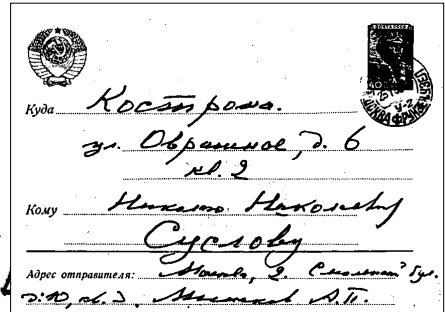 ПОЧТА СССР
Куда Кострома.
ул. Овражная, д. 6
кв. 2
Кому Николаевичу
Суслову
Адрес отправителя: Москва, 2. Смоленский бул.
д. 10, кв. А.П.